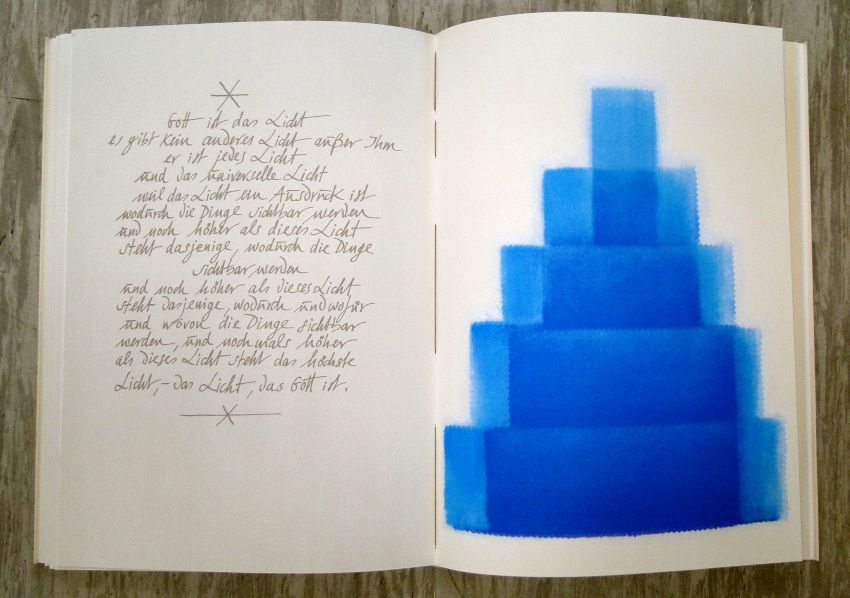 Gott ist das Licht
es gibt kein anderes Licht außer Ihm
er ist jedes Licht
und das universelle Licht
weil das Licht ein Ausdruck ist
wodurch die Dinge sichtbar werden
und noch höher als dieses Licht
steht dasjenige, wodurch die Dinge
sichtbar werden
und noch höher als dieses Licht
steht dasjenige, wodurch und wofür
und wovon die Dinge sichtbar
werden, und nochmals höher
als dieses Licht steht das höchste
Licht, – das Licht, das Gott ist.